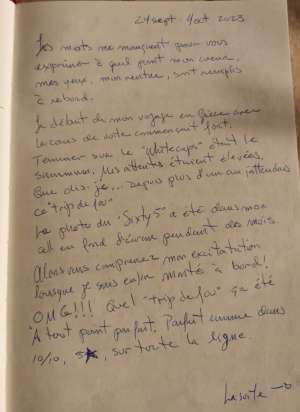 24 sept - 4 oct 2023
Les mots me manquent pour vous
exprimer à quel point mon coeur,
mes yeux, mon ventre, sont remplis
à rebord.
Le début de mon voyage en Grèce avec
le cours de voile commençait fort.
Terminer sur le " " était le
summum. Mes attentes étaient élevées,
Que dis-je... Depuis plus d'un an j'attendais
ce "trip de fou".
La photo du "Sixty5" a été dans mon
cell en fond d'écran pendant des mois.
Alors vous comprenez mon excitation
lorsque je suis enfin montée à bord!
OMG!!! Quel "trip de fou" ça a été
À tout point parfait. Parfait comme dans
10/10, 5★, sur toute la ligne.
La suite →